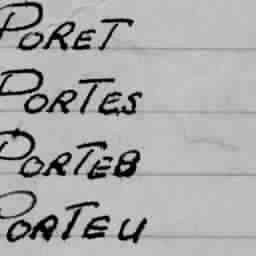 PORET
PORTES
PORTEB
PORTEU